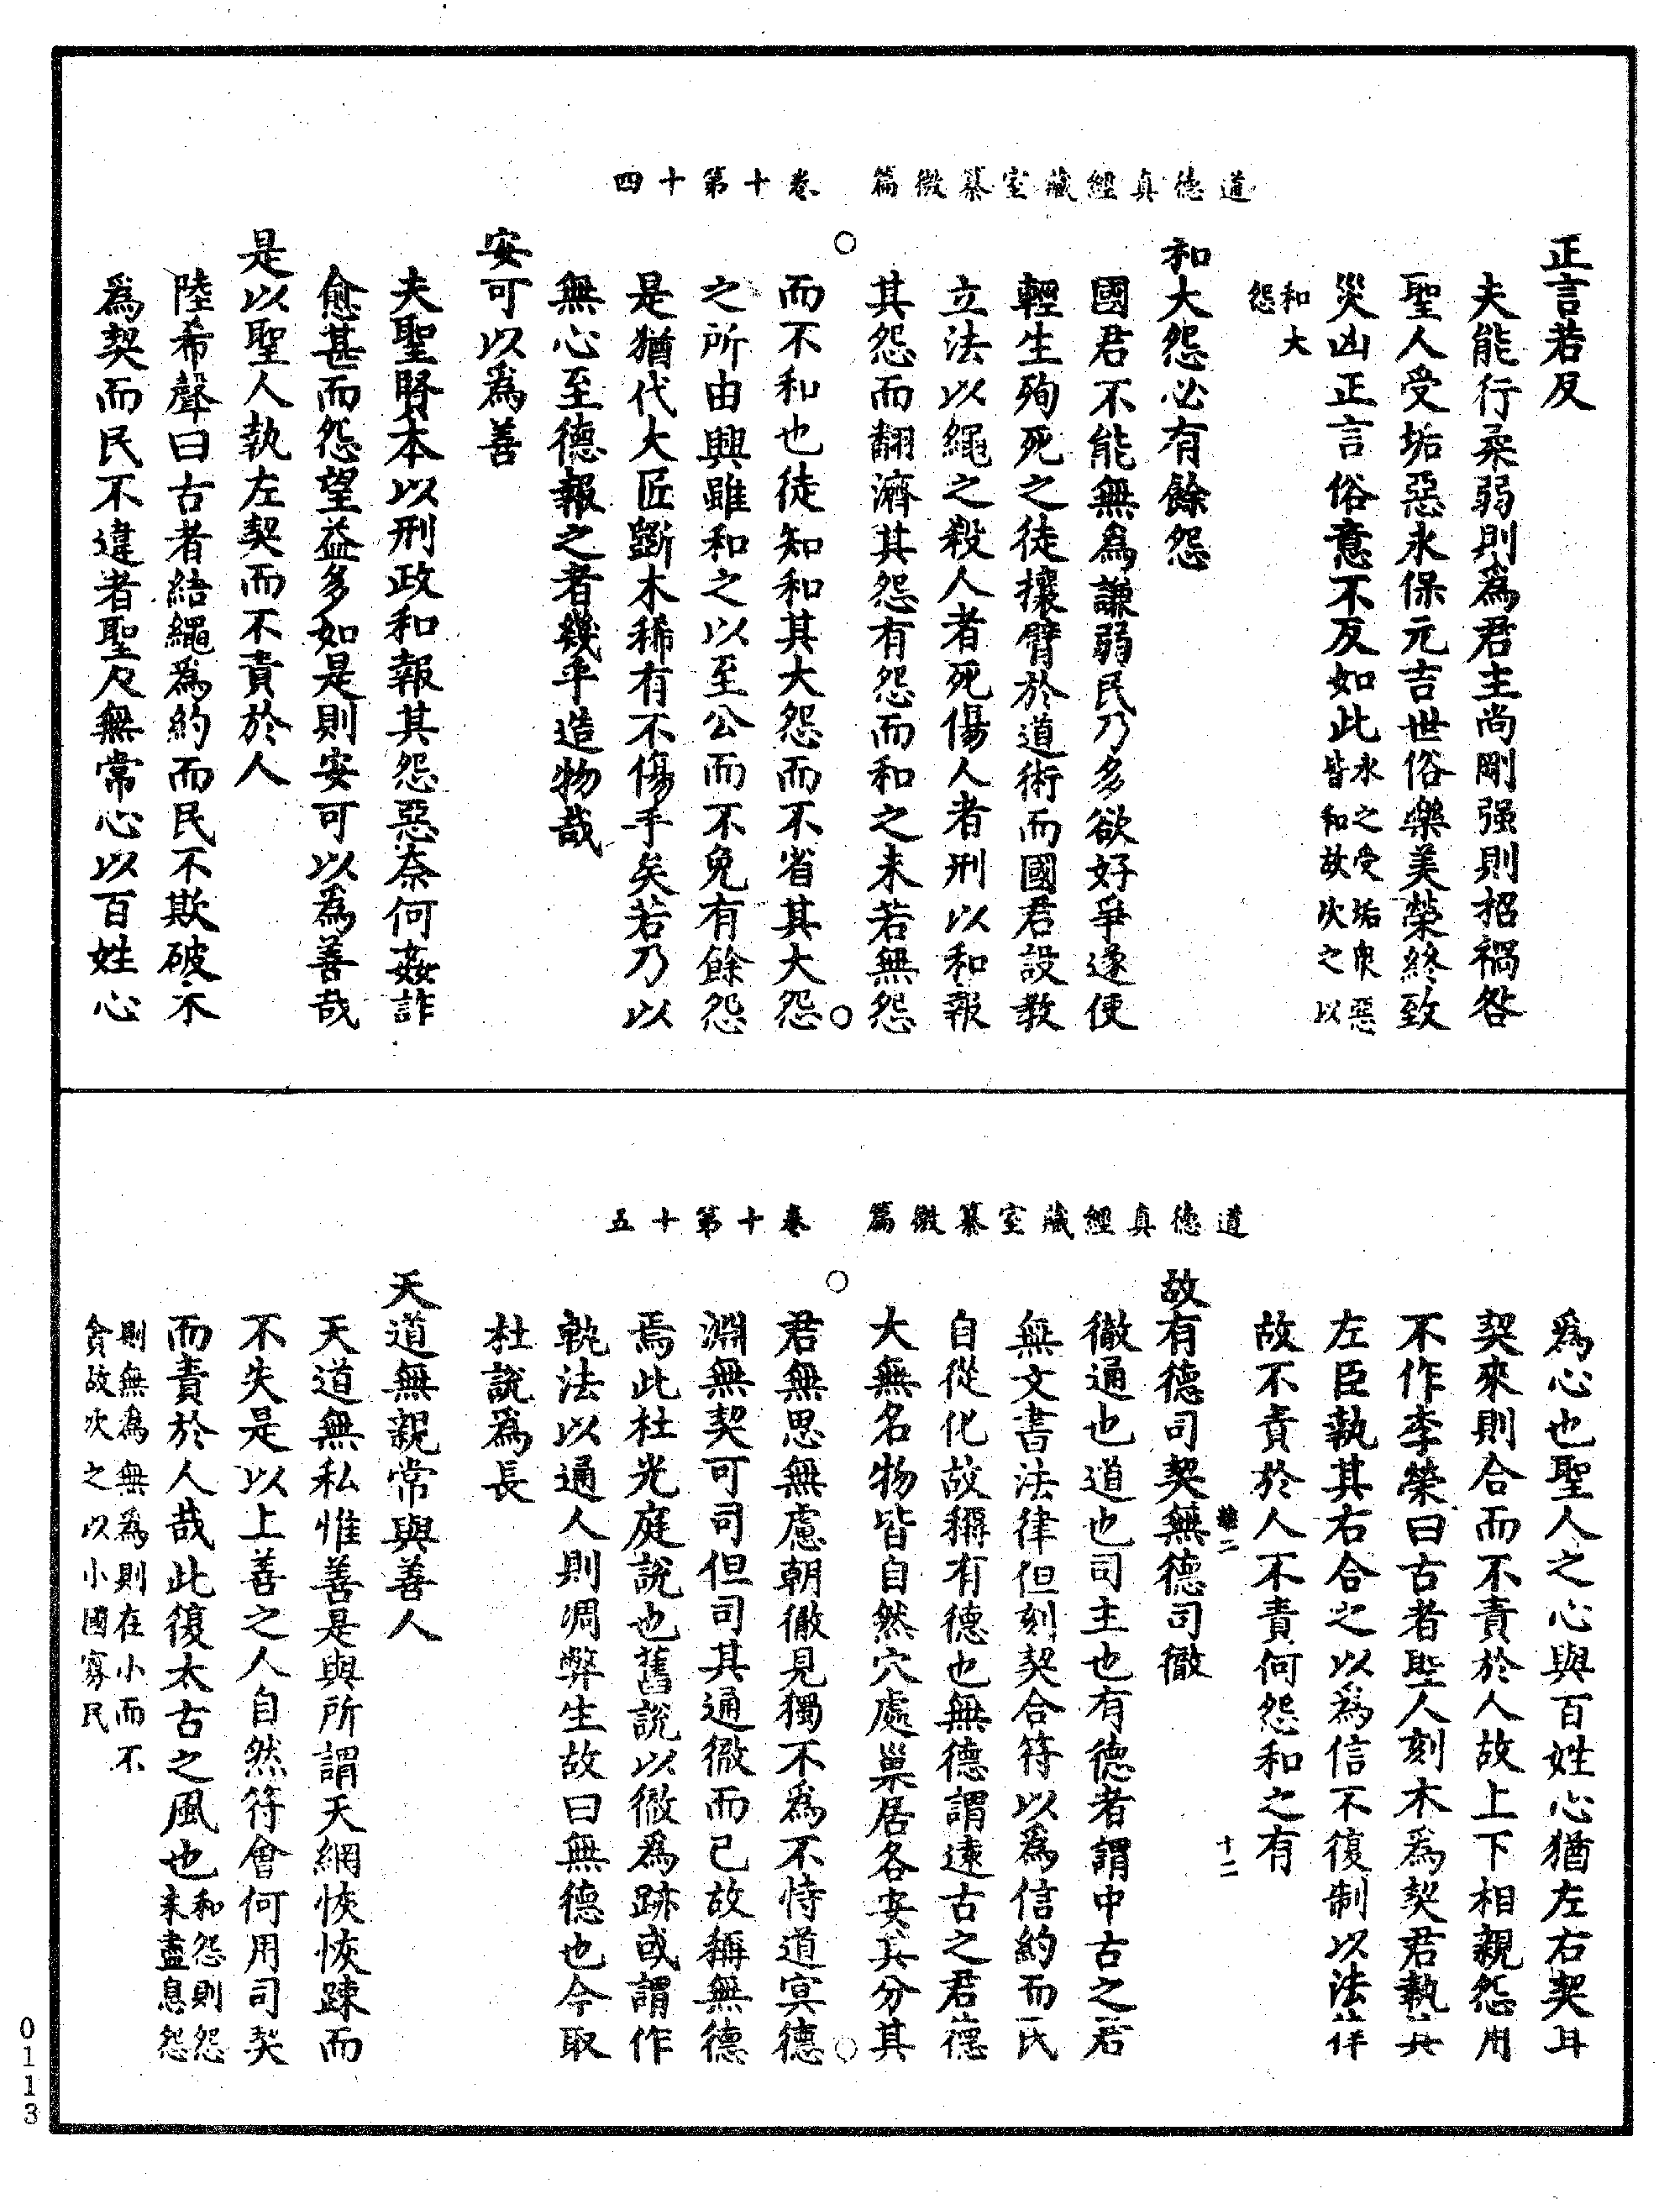 道德真經藏室纂微篇　卷十第十四
正言若反
夫能行柔弱則爲君主尚剛强則招禍咎
聖人受垢惡永保元吉世俗樂美榮終致
災凶正言俗意不反如此
永之受垢衆惡
皆和故次之以
和大
怨
和大怨必有餘怨
國君不能無爲謙弱民乃多欲好爭遂使
輕生殉死之徒攘臂於道術而國君設教
立法以繩之殺人者死傷人者刑以和報
其怨而翻濟其怨有怨而和之未若無怨
而不和也徒知和其大怨而不省其大怨
之所由興雖和之以至公而不免有餘怨
是猶代大匠斲木稀有不傷手矣若乃以
無心至德報之者幾乎造物哉
安可以爲善
夫聖賢本以刑政和報其怨惡奈何姦詐
愈甚而怨望益多如是則安可以爲善哉
是以聖人執左契而不責於人
陸希聲曰古者結繩爲約而民不欺破木
爲契而民不違者聖人無常心以百姓心
道德真經藏室纂微篇　卷十第十五
爲心也聖人之心與百姓心猶左右契耳
契來則合而不責於人故上下相親怨用
不作李榮曰古者聖人刻木爲契君執其
左臣執其右合之以爲信不復制以法律
故不責於人不責何怨和之有
二　十二
故有德司契無德司徹
徹通也道也司主也有德者謂中古之君
無文書法律但刻契合符以爲信約而民
自從化故稱有德也無德謂遠古之君德
大無名物皆自然穴處巢居各安其分其
君無思無慮朝徹見獨不爲不恃道冥德
淵無契可司但司其通徹而已故稱無德
焉此杜光庭說也舊說以徹爲跡或謂作
軌法以通人則凋弊生故曰無德也今取
杜說爲長
天道無親常與善人
天道無私惟善是與所謂天網恢恢踈而
不失是以上善之人自然符會何用司契
而責於人哉此復太古之風也
和怨則怨
未盡息怨
則無爲無爲則在小而不
貪故次之以小國寡民
0113